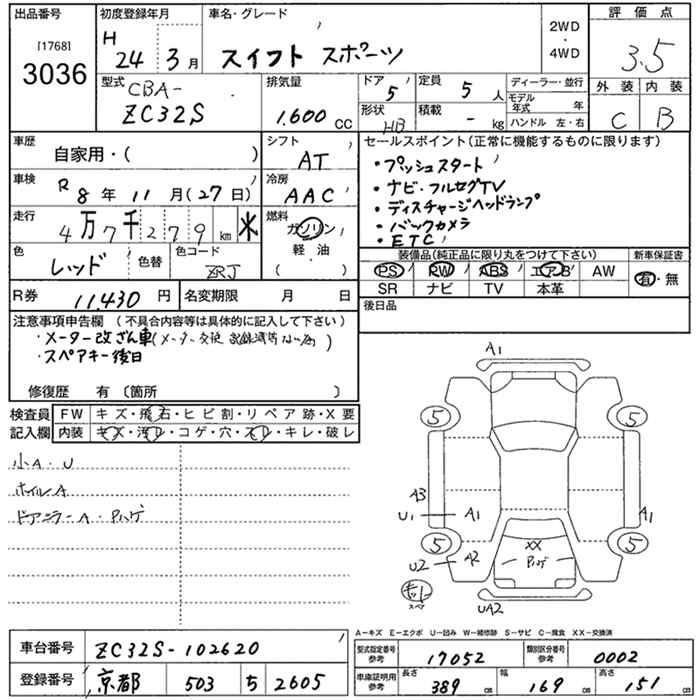 出品番号 初度登録年月 車名・グレード
[1768]
3036
H 24 年 3 月 スイフト スポーツ
2WD
・
4WD
評価点
3.5
外装 内装
C B
型式 CBA-
ZC32S
排気量
1.600 CC
ドア 5
定員 5 人
ディーラー・並行
モデル年式 年
形状 HB
積載 - kg
ハンドル 左・右
車歴
自家用・( )
シフト
AT
車検 R 8 年 11 月 (27 日)
冷房
AAC
走行 4万7千279 km ※
燃料
ガソリン
軽・油
( )
色 レッド 色替
色コード
ZRJ
R券 11,430 円 名変期限 月 日
セールスポイント(正常に機能するものに限ります)
・プッシュスタート
・ナビ・フルセグTV
・ディスチャージヘッドランプ
・バックカメラ
・ETC
装備品(純正品に限り丸をつけて下さい) 新車保証書
PS PW ABS エアB AW
SR ナビ TV 本革
有・無
後日品
注意事項申告欄 (不具合内容等は具体的に記入して下さい)
・メーター改ざん車(メーター交換 記録簿等ない為)
・スペアキー後日
修復歴 有 〔箇所 〕
検査員
記入欄
FW キズ・飛石・ヒビ割・リペア跡・X要
内装 キズ・汚レ・コゲ・穴・スレ・キレ・破レ
小A・U
ホイルA
ドアミラーA・Pハゲ
A1
5 5
A3
U1 A1 A1
5 5
U2 A2
XX
Pハゲ
キット
スペア
UA2
A-キズ E-エクボ U-凹み W-補修跡 S-サビ C-腐食 XX-交換済
車台番号 ZC32S-102620
登録番号 京都 503 5 2605
型式指定番号
参考
17052
類別区分番号
参考
0002
車庫証明用
参考
長さ 389 cm
幅 169 cm
高さ 151 cm